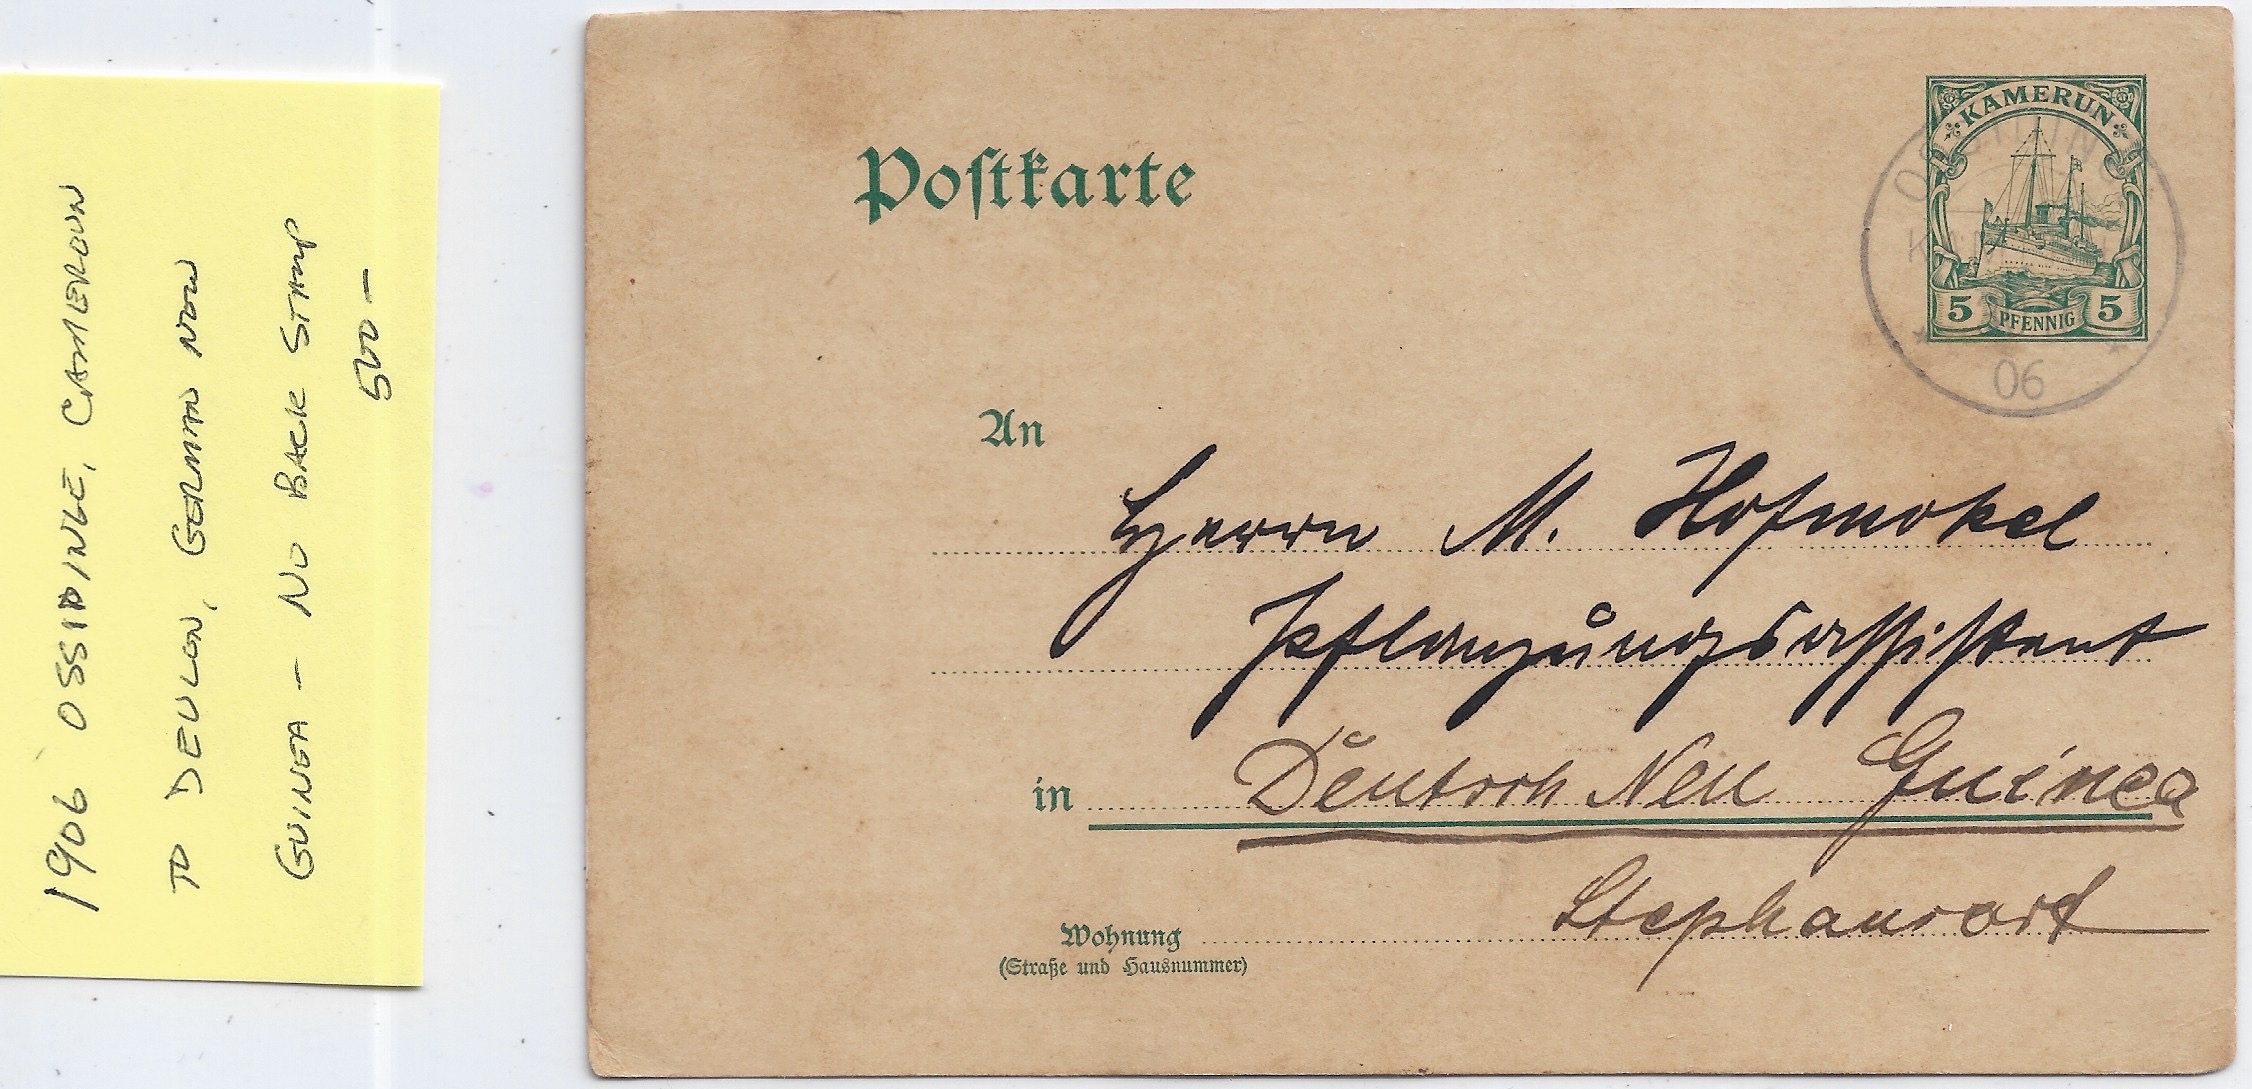 1906 OSSIDINGE, CAMEROUN
TO DEULON, GERMAN NEW
GUINEA - NO BACK STAMP
500 -
Postkarte
KAMERUN
5 PFENNIG 5
06
An
Herrn M. Hofmokel
Pflanzungsassistent
in Deutsch Neu Guinea
Stephansort
Wohnung
(Straße und Hausnummer)